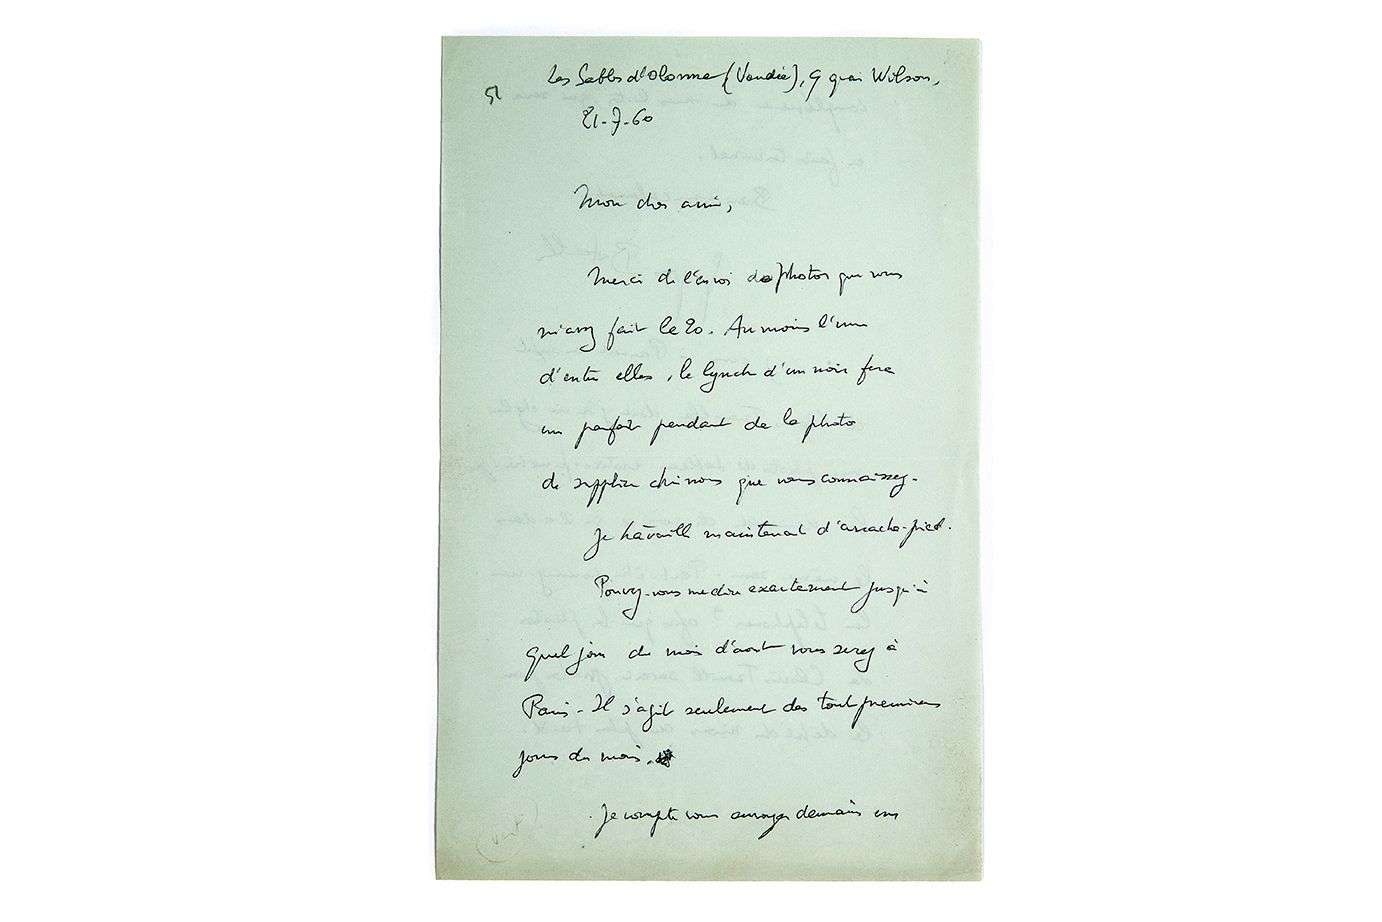 Les Sables d'Olonne (Vendée), 9 quai Wilson,
51
21-7-60
Mon cher ami,
Merci de l'envoi de photos que vous
m'avez fait le 20. Au moins l'une
d'entre elles, le lynch d'un noir fera
un parfait pendant de la photo
de supplice chinois que vous connaissez.
Je travaille maintenant d'arrache-pied.
Pouvez-vous me dire exactement jusqu'à
quel jour du mois d'août vous serez à
Paris - Il s'agit seulement des tout premiers
jours du mois.
Je compte vous envoyer demain un